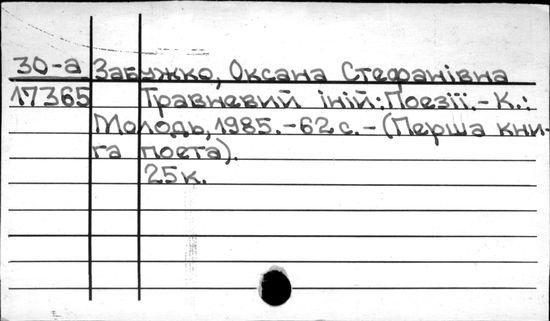 30-а Забужко, Оксана Стефанівна
17365 Травневий іній: Поезії.-К.:
Молодь, 1985.-62 с.-(Перша кни-
га поета).
25к.